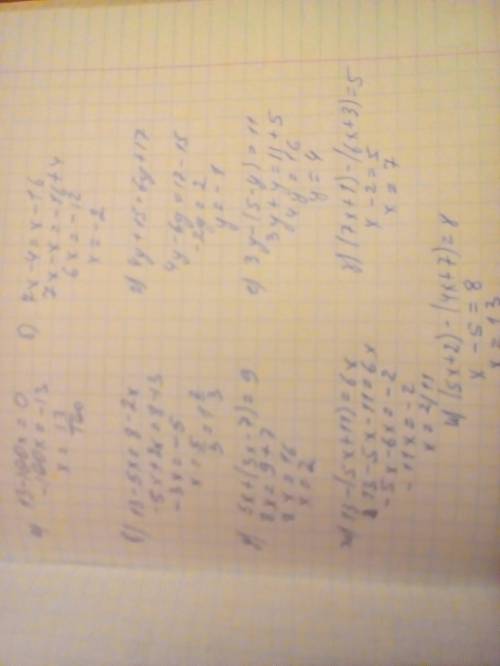 а) 13-100x=0
-100x=-13
x=13/100
б) 7x-4=x-16
7x-x=-16+4
6x=-12
x=-2
в) 13-5x=8-2x
-5x+2x=8+13
-3x=-5
г) 4y+15=6y+17
4y-6y=17-15
-2y=2
y=-1
д) 5x+(3x-7)=9
8x=9+7
8x=16
x=2
е) 3y-(5-y)=11
3y+y=11+5
4y=16
y=4
ж) 13-(5x+11)=6x
13-5x-11=6x
-5x-6x=-2
-11x=-2
x=2/11
з) (7x+1)-(6x+3)=5
x-2=5
x=7
и) (5x+2)-(4x+7)=8
x-5=8
x=13